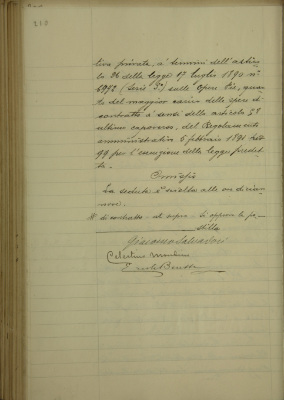 tiva privata, a' termini dell'artico
lo 26 della legge 17 luglio 1890 n°
6972 (Serie 3ª) sulle Opere Pie, quan
to del maggior carico delle opere
contratte a' sensi della articolo 38
ultimo capoverso, del Regolamento
amministrativo 5 febbraio 1891 N°
99 per l'esecuzione della legge predet
ta.
Omissis
La seduta è sciolta alle ore
di contrasto - al sopra - si appone la po
stilla
Giacomo Salvadori
Celestino
Ercole